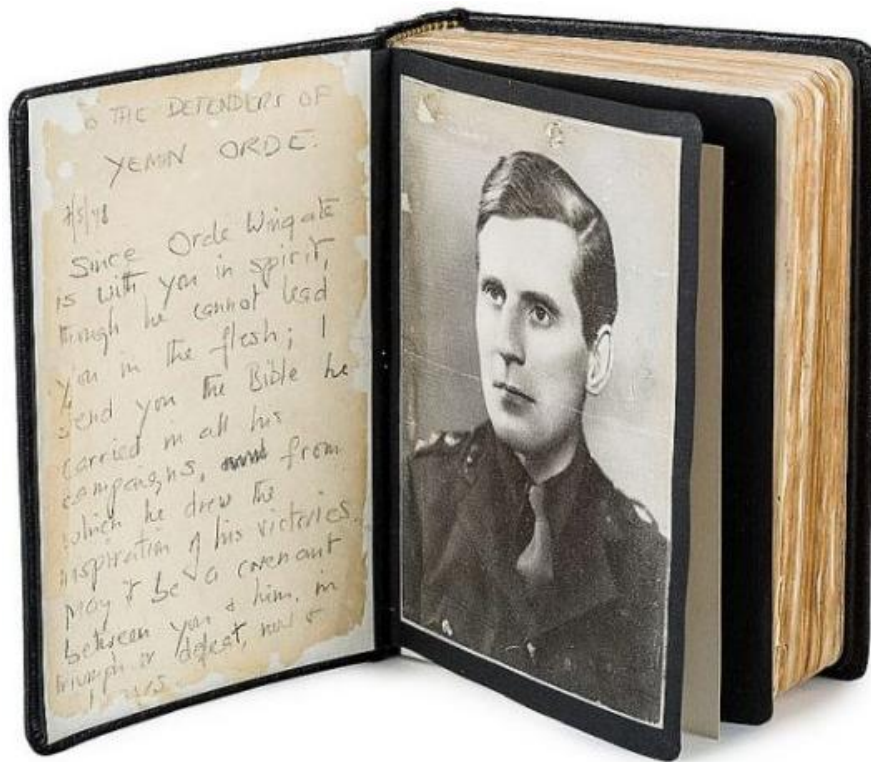 o THE DEFENDERS OF
YEMIN ORDE.
7/5/48
Since Orde Wingate
is with you in spirit,
though he cannot lead
you in the flesh; I
send you the Bible he
carried in all his
campaigns, from
which he drew the
inspiration of his victories.
May it be a covenant
between you & him, in
triumph or defeat, now &